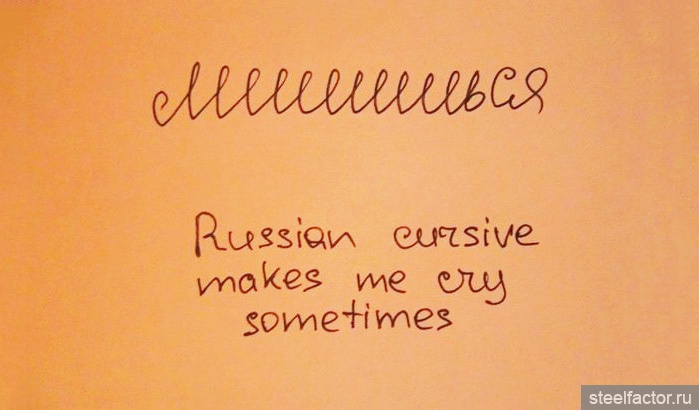 лишишься
Russian cursive
makes me cry
sometimes
steelfactor.ru